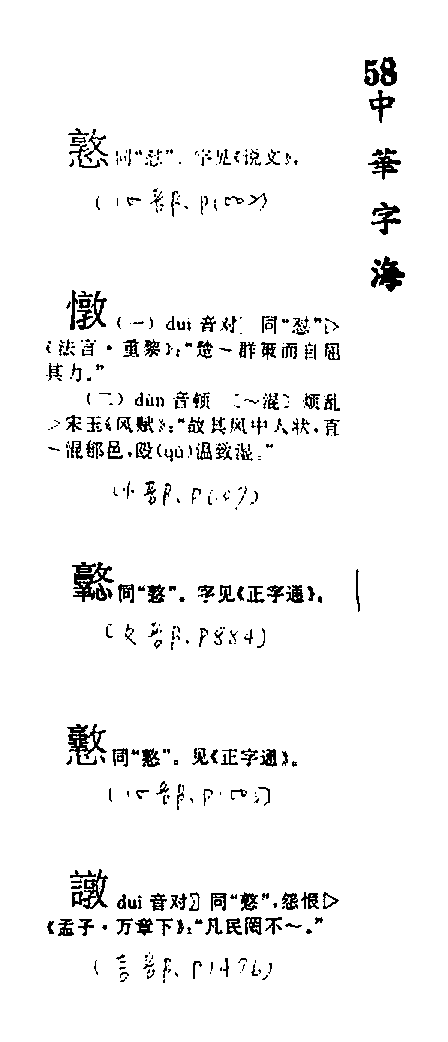 58
中華字海
憝 同“憝”。字见《说文》。
(心部、P1002)
憞 (一) duì 音对〕 同“憝”▷
《法言·重黎》:“楚〜群策而自屈
其力。”
(二) dùn 音顿 〔〜混〕 烦乱
▷宋玉《风赋》:“故其风中人状,直
〜混郁邑,殴(qū)温致湿。”
同“憝”。字见《正字通》。
(文部、P884)
同“憝”。见《正字通》。
譈 duì 音对〕 同“憝”,怨恨▷
《孟子·万章下》:“凡民罔不〜。”
(言部、P1476)